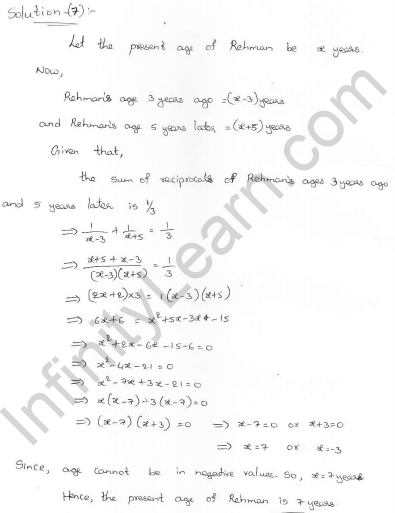 Solution-(7):-
Let the present age of Rehman be x years.
Now,
Rehman's age 3 years ago = (x-3) years
and Rehman's age 5 years later = (x+5) years
Given that,
the sum of reciprocals of Rehman's ages 3 years ago
and 5 years later is 1/3
⇒ 1/(x-3) + 1/(x+5) = 1/3
⇒ (x+5+x-3)/((x-3)(x+5)) = 1/3
⇒ (2x+2)×3 = 1(x-3)(x+5)
⇒ 6x+6 = x²+5x-3x-15
⇒ x²+2x-6x-15-6=0
⇒ x²-4x-21=0
⇒ x²-7x+3x-21=0
⇒ x(x-7)+3(x-7)=0
⇒ (x-7)(x+3)=0 ⇒ x-7=0 or x+3=0
⇒ x=7 or x=-3
Since, age cannot be in negative values. So, x=7 years
Hence, the present age of Rehman is 7 years.
InfinityLearn.com